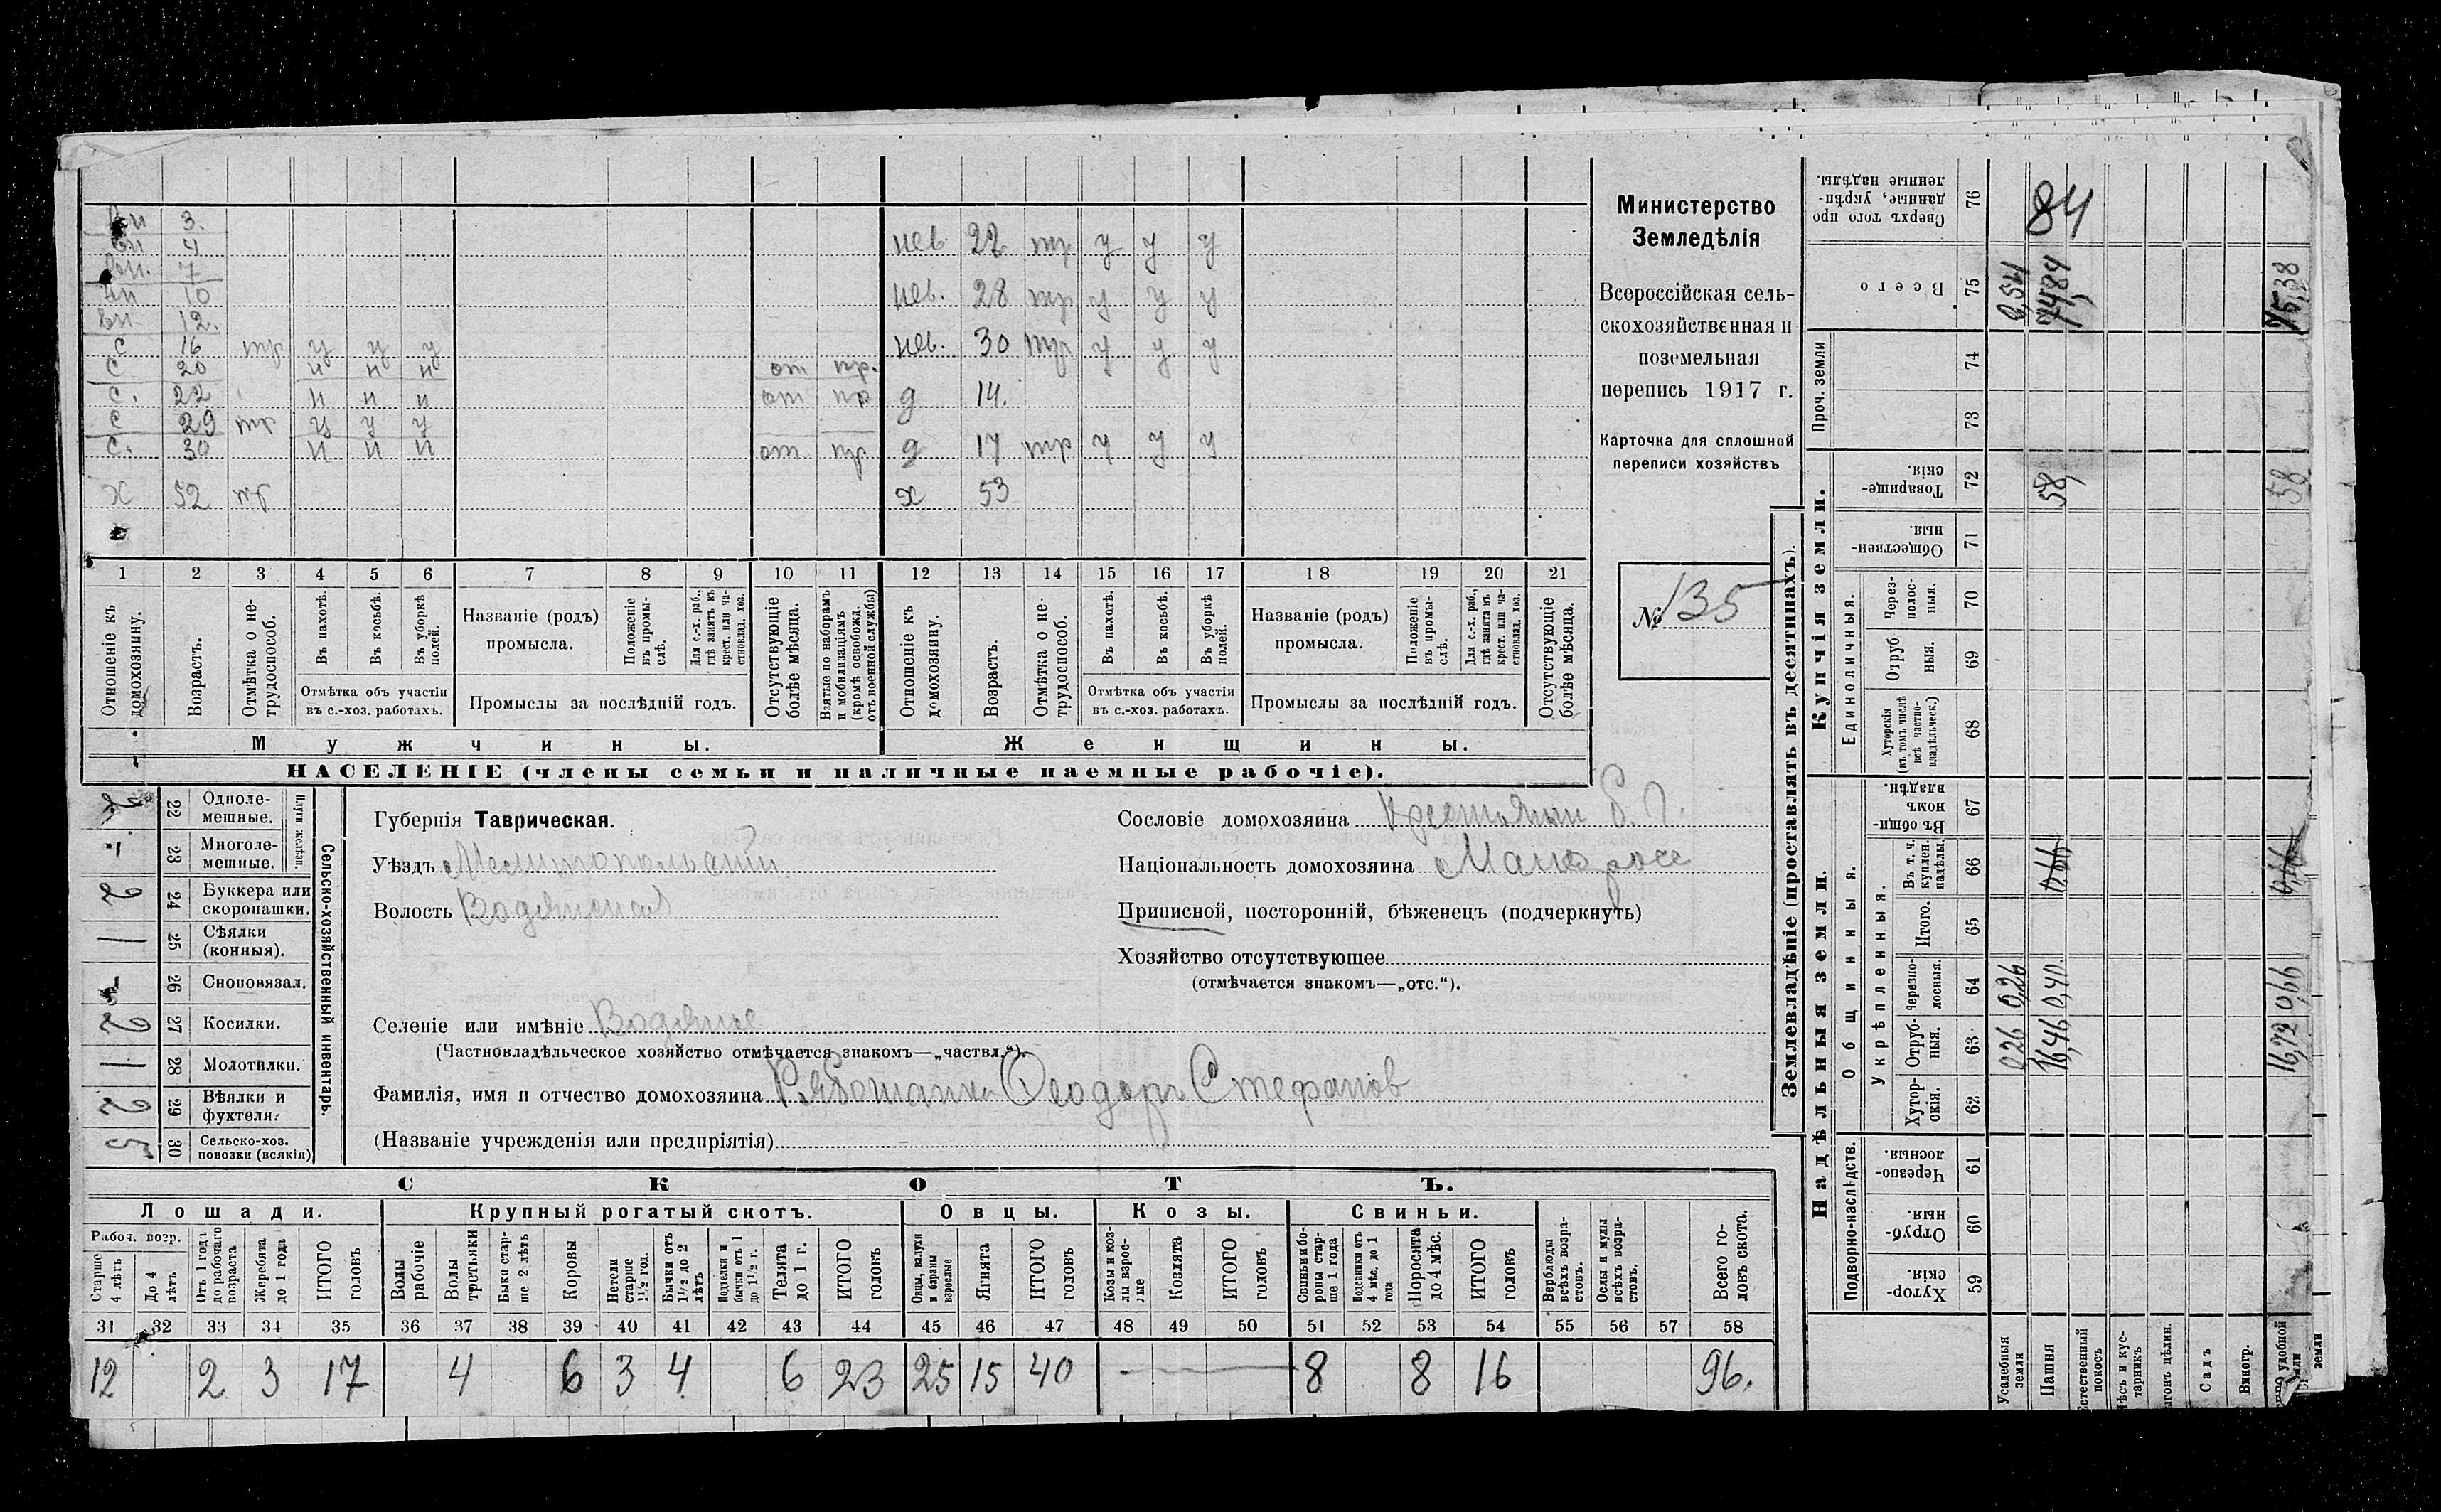 вн 3.
вн 4
вн. 7
вн 10
вн 12.
с 16 тр у у у
с 20 н н н от пр.
с. 22 н н н от пр
с 29 тр у у у
с. 30 н н н от пр
х 52 тр
нев 22 тр у у у
нев. 28 тр у у у
нев. 30 тр у у у
д 14.
д 17 тр у у у
х 53
1 2 3 4 5 6 7 8 9 10 11 12 13 14 15 16 17 18 19 20 21
Отношеніе къ домохозяину.
Возрастъ.
Отмѣтка о нетрудоспособ.
Въ пахотѣ.
Въ косьбѣ.
Въ уборкѣ полей.
Отмѣтка объ участіи въ с.-хоз. работахъ.
Названіе (родъ) промысла.
Положеніе въ промыслѣ.
Для с.-х. раб., гдѣ занятъ въ крест. или частновлад. хоз.
Промыслы за послѣдній годъ.
Отсутствующіе болѣе мѣсяца.
Взятые по наборамъ и мобилизаціямъ (кромѣ освобожд. отъ военной службы)
Отношеніе къ домохозяину.
Возрастъ.
Отмѣтка о нетрудоспособ.
Въ пахотѣ.
Въ косьбѣ.
Въ уборкѣ полей.
Отмѣтка объ участіи въ с.-хоз. работахъ.
Названіе (родъ) промысла.
Положеніе въ промыслѣ.
Для с.-х. раб., гдѣ занята въ крест. или частновлад. хоз.
Промыслы за послѣдній годъ.
Отсутствующіе болѣе мѣсяца.
Мужчины.
Женщины.
НАСЕЛЕНІЕ (члены семьи и наличные наемные рабочіе).
Министерство
Земледѣлія
Всероссійская сель-
скохозяйственная и
поземельная
перепись 1917 г.
Карточка для сплошной
переписи хозяйствъ
№ 135
Сельско-хозяйственный инвентарь.
Плуги желѣзн.
22 Однолемешные.
23 Многолемешные.
24 Буккера или скоропашки. 2
25 Сѣялки (конныя). 1
26 Сноповязал.
27 Косилки. 2
28 Молотилки. 1
29 Вѣялки и фухтеля. 2
30 Сельско-хоз. повозки (всякія) 5
Губернія Таврическая.
Уѣздъ Мелитопольскій
Волость Водянская
Селеніе или имѣніе Водяное
(Частновладѣльческое хозяйство отмѣчается знакомъ—„частвл.“).
Фамилія, имя и отчество домохозяина Рябошапка Ѳеодоръ Стефанов
(Названіе учрежденія или предпріятія)
Сословіе домохозяина крестьянин
Національность домохозяина Малоросс
Приписной, посторонній, бѣженецъ (подчеркнуть)
Хозяйство отсутствующее
(отмѣчается знакомъ—„отс.“).
СКОТЪ.
Лошади. Крупный рогатый скотъ. Овцы. Козы. Свиньи.
Рабоч. возр.
Старше 4 лѣтъ
До 4 лѣтъ
Отъ 1 года до рабочаго возраста
Жеребята до 1 года
ИТОГО головъ
Волы рабочіе
Волы третьяки
Быки старше 2 лѣтъ
Коровы
Нетели старше 1½ год.
Бычки отъ 1½ до 2 лѣтъ
Подтелки и бычки отъ 1 до 1½ г.
Телята до 1 г.
ИТОГО головъ
Овцы, валухи и бараны взрослые
Ягнята
ИТОГО головъ
Козы и козлы взрослые
Козлята
ИТОГО головъ
Свиньи и боровы старше 1 года
Подсвинки отъ 4 мѣс. до 1 года
Поросята до 4 мѣс.
ИТОГО головъ
Верблюды всѣхъ возрастовъ.
Ослы и мулы всѣхъ возрастовъ.
Всего головъ скота.
31 32 33 34 35 36 37 38 39 40 41 42 43 44 45 46 47 48 49 50 51 52 53 54 55 56 57 58
12 2 3 17 4 6 3 4 6 23 25 15 40 — 8 8 16 96.
Землевладѣніе (проставлять въ десятинахъ).
Купчія земли.
Надѣльныя земли.
Сверхъ того проданные, укрѣпленные надѣлы. 76 84
Всего 75 0,54 74,84 75,38
Проч. земли 74 73
Товарищескія. 72 58, 58
Общественныя. 71
Единоличныя.
Черезполосныя. 70
Отрубныя. 69
Хуторскія (въ томъ числѣ всѣ частновладѣльческ.) 68
Общинныя.
Въ общинномъ владѣн. 67
Укрѣпленныя.
Въ т. ч. куплен. надѣлы. 66
Итого. 65
Черезполосныя. 64 0,26 0,40 0,66
Отрубныя. 63 0,26 16,46 16,72
Хуторскія. 62
Подворно-наслѣдств.
Черезполосныя. 61
Отрубныя. 60
Хуторскія. 59
Усадебныя земли
Пашня
Естественный покосъ
Лѣсъ и кустарникъ
Выгонъ цѣлин.
Садъ
Виногр.
удобной земли
земли